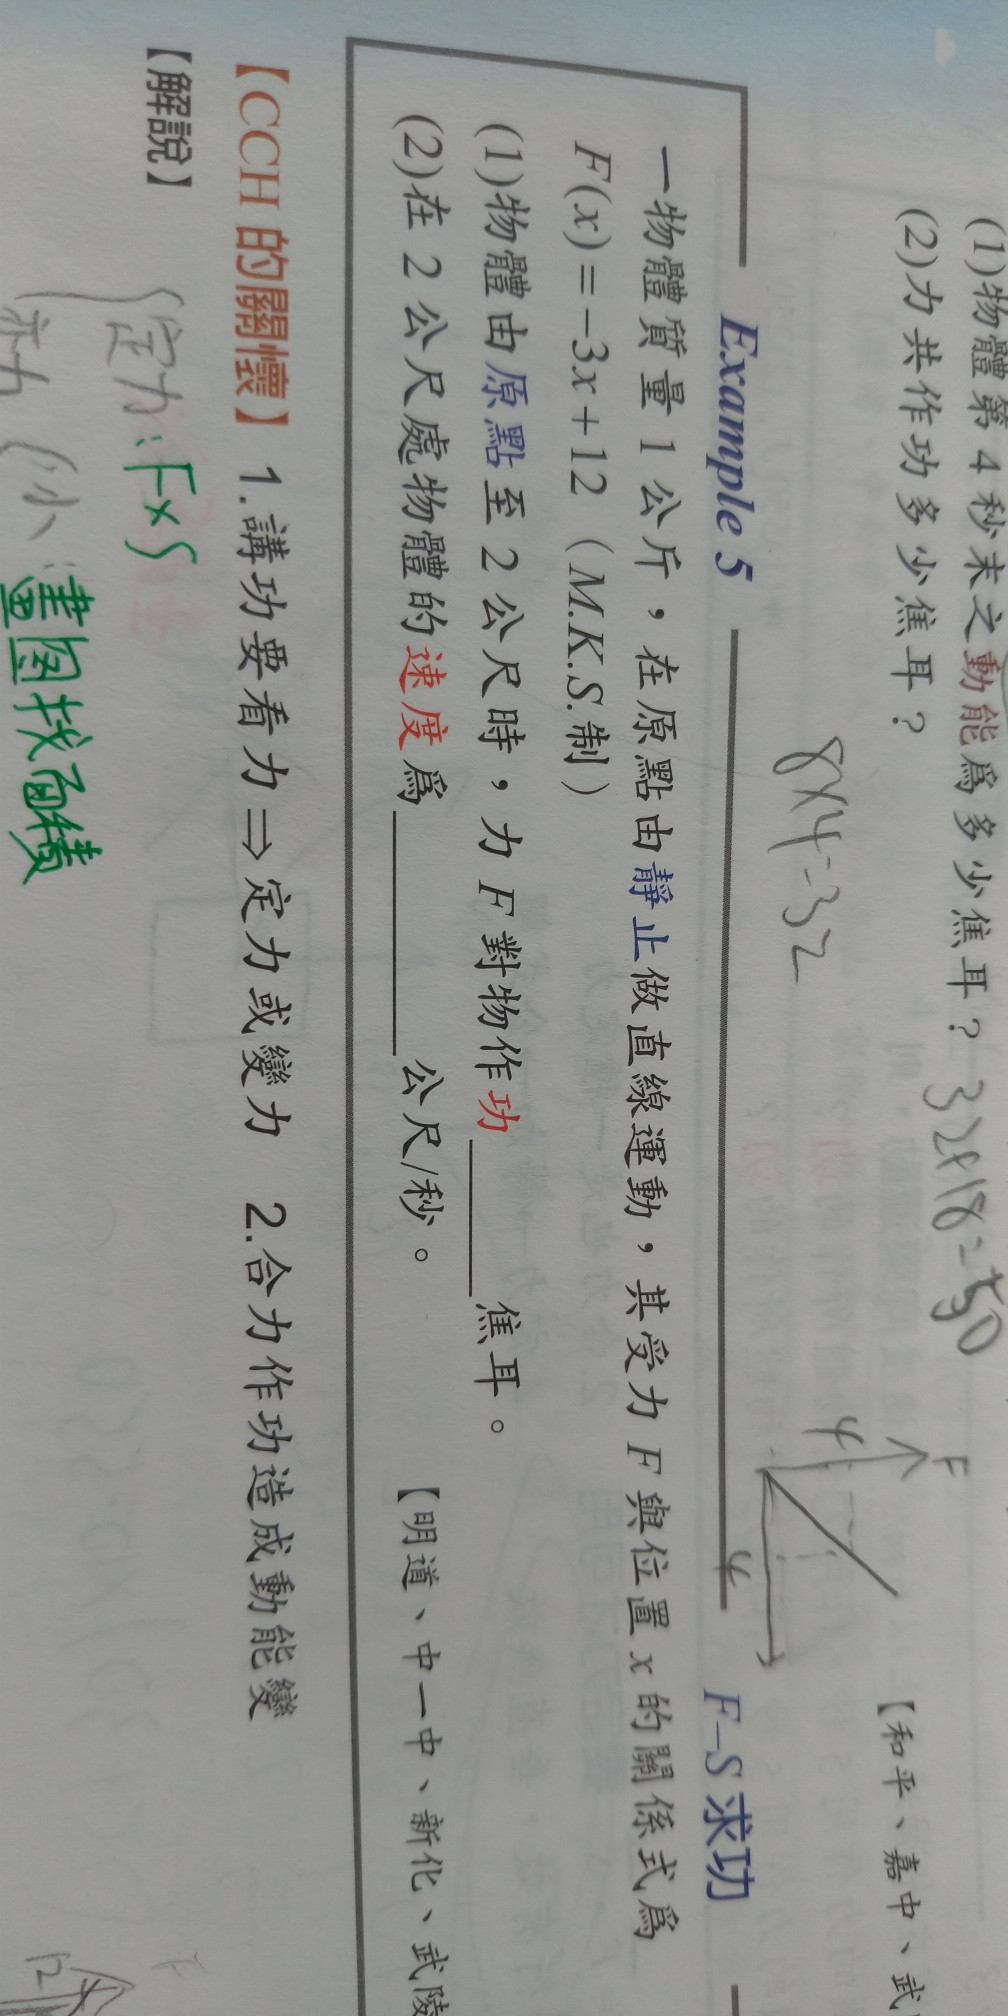 (1)物體第 4 秒末之動能爲多少焦耳？ 32×18=
(2)力共作功多少焦耳？
【和平、嘉中、武
8×4=32
F
4
4
Example 5
F–S 求功
一物體質量 1 公斤，在原點由靜止做直線運動，其受力 F 與位置 x 的關係式爲
F(x)=−3x+12（M.K.S.制）
(1)物體由原點至 2 公尺時，力 F 對物作功＿＿＿＿焦耳。
(2)在 2 公尺處物體的速度爲＿＿＿＿＿＿公尺/秒。
【明道、中一中、新化、武陵
【CCH 的關懷】 1.講功要看力⇒定力或變力 2.合力作功造成動能變
【解說】
定力：F×S
畫圖找面積
12